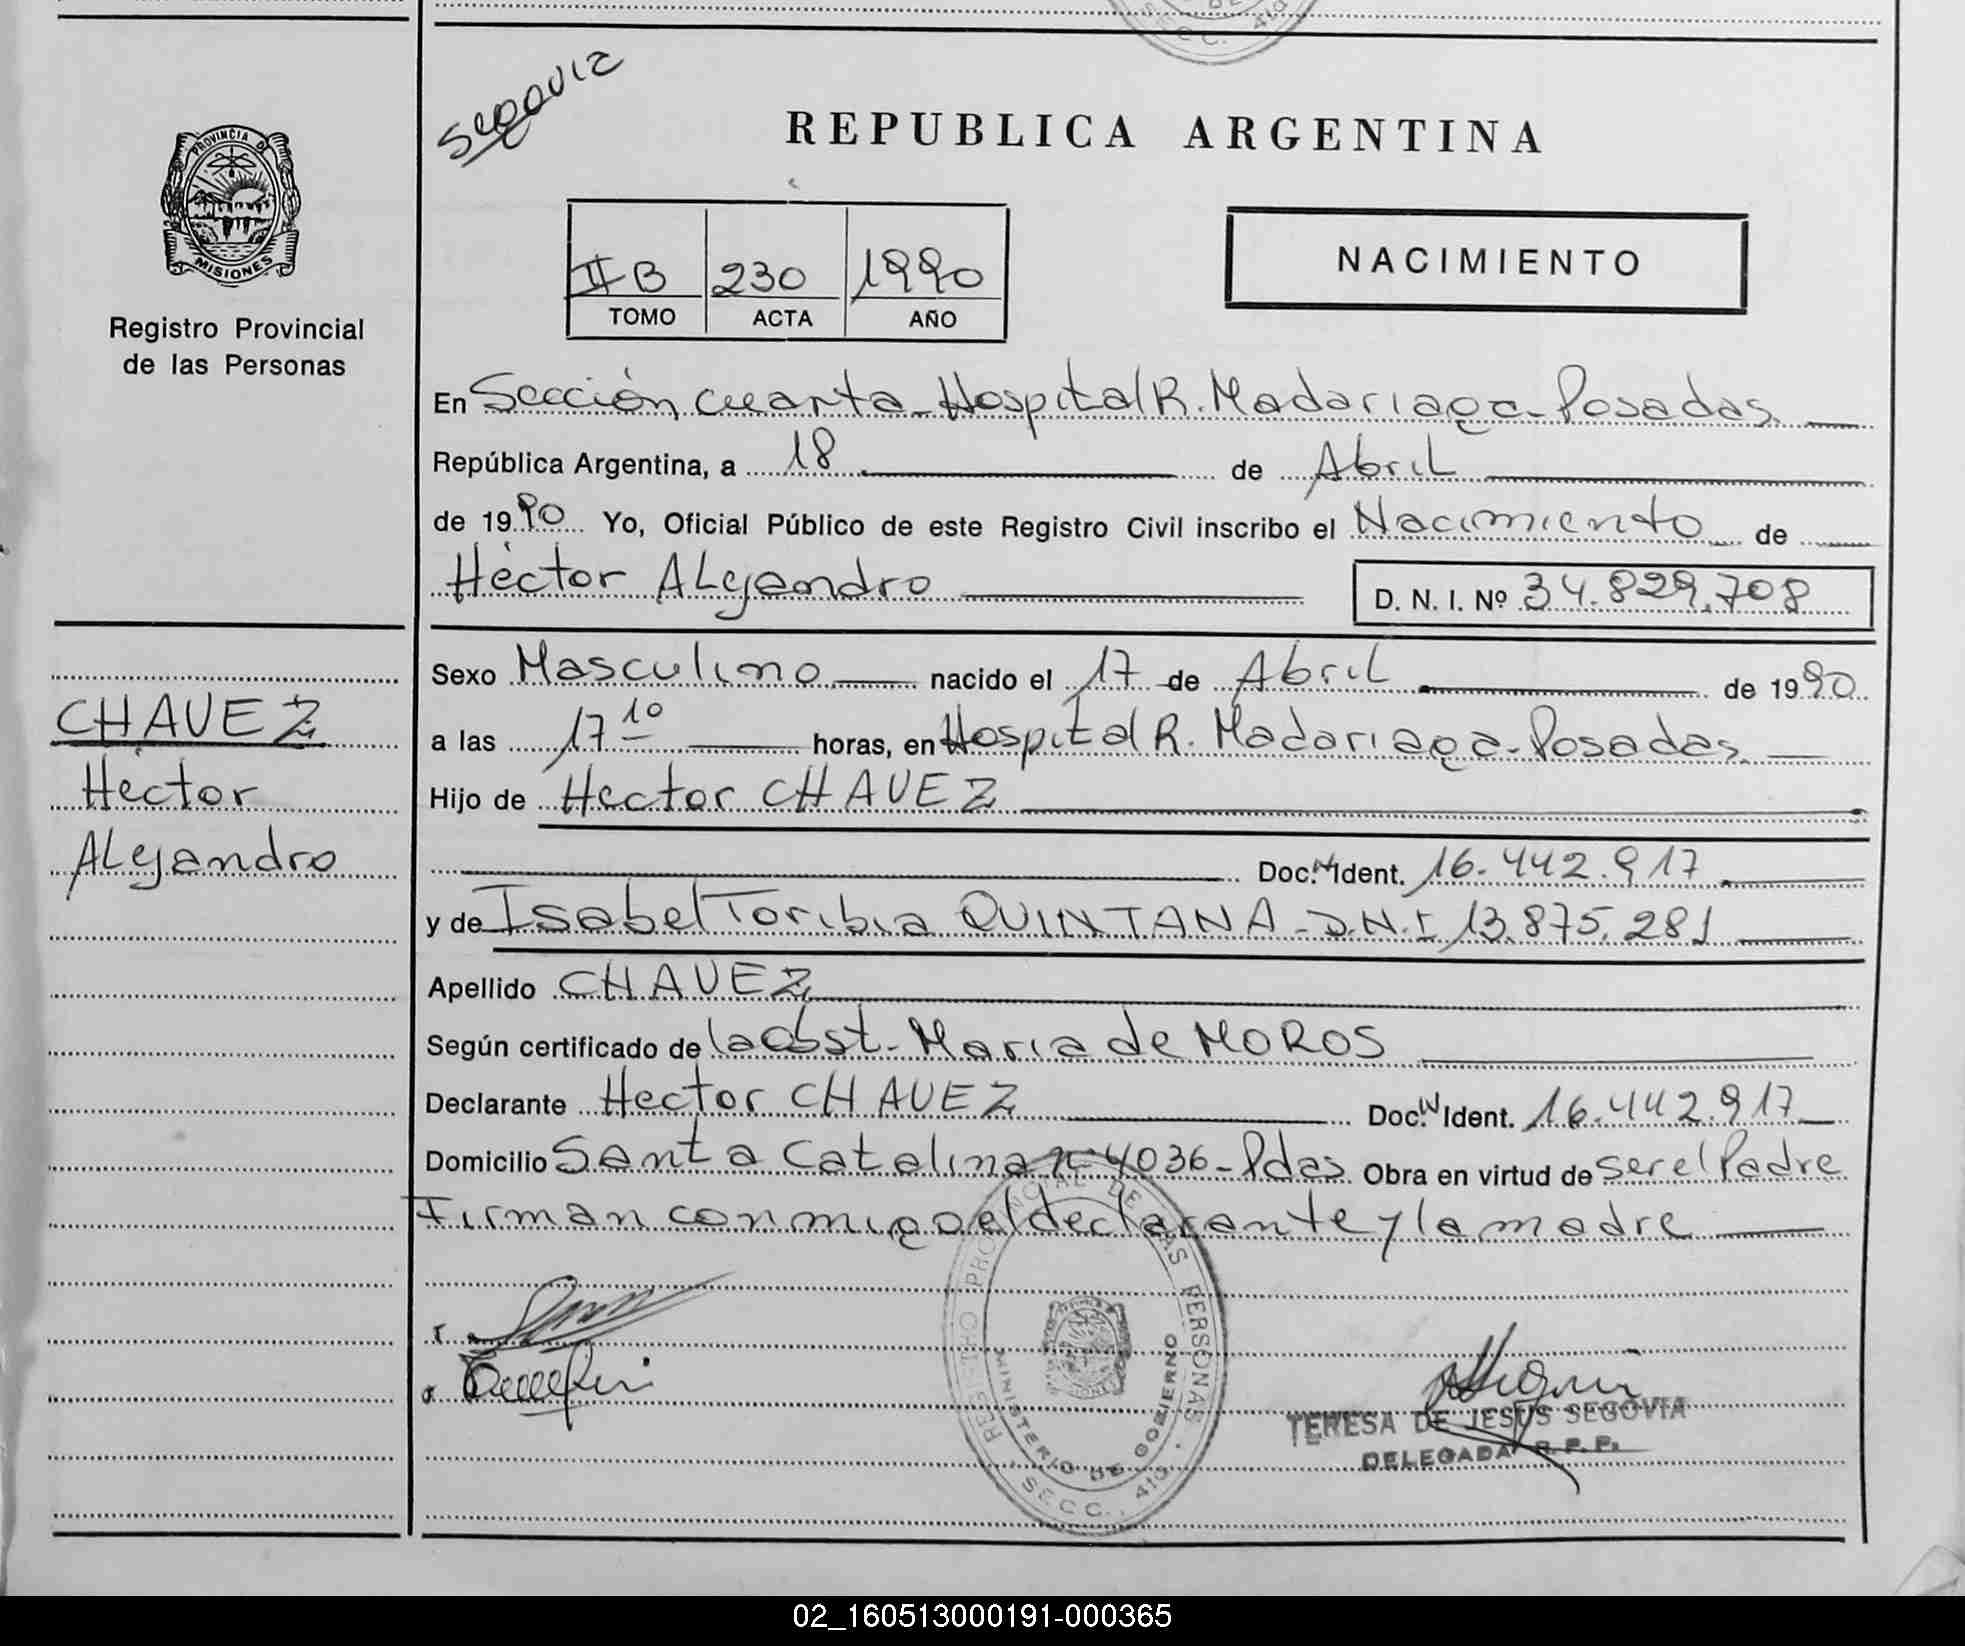 SECC. 4ta
REPUBLICA ARGENTINA
PROVINCIA D
MISIONES
Registro Provincial
de las Personas
II B 230 1990
TOMO ACTA AÑO
NACIMIENTO
En Sección cuarta - Hospital R. Madariaga - Posadas
República Argentina, a 18 de Abril
de 1990 Yo, Oficial Público de este Registro Civil inscribo el Nacimiento de
Héctor Alejandro D. N. I. Nº 34.829.708
Sexo Masculino nacido el 17 de Abril de 1990
a las 17 10 horas, en Hospital R. Madariaga - Posadas
Hijo de Hector CHAVEZ
Doc. N. Ident. 16.442.917
y de Isabel Toribia QUINTANA - D.N.I 13.875.281
Apellido CHAVEZ
Según certificado de la obst. Maria de MOROS
Declarante Hector CHAVEZ Doc. N Ident. 16.442.917
Domicilio Santa Catalina nº 4036 - Pdas Obra en virtud de ser el Padre
Firman conmigo el declarante y la madre
CHAVEZ
Héctor
Alejandro
REGISTRO PROVINCIAL DE LAS PERSONAS
MINISTERIO DE GOBIERNO
SECC. 4ta
TERESA DE JESUS SEGOVIA
DELEGADA R. P. P.
02_160513000191-000365